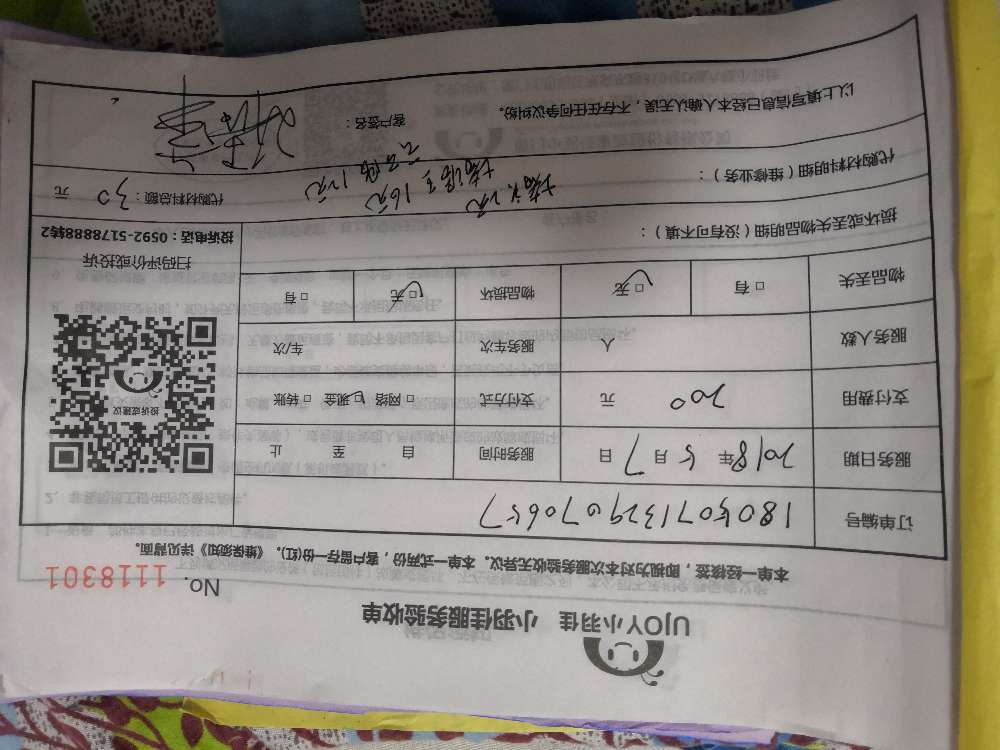 UJOY小羽佳 小羽佳服务验收单
No. 1118301
本单一经签收,即视为对本次服务验收无异议。本单一式两份,客户留存一份(红)。《维保须知》详见背面。
订单编号 1805071329070657
服务日期 2018年5月7日 服务时间 自 至 止
支付费用 200 元 支付方式 □网络 □现金 □转账
服务人数 人 服务车次 车/次
物品丢失 □有 □无 物品损坏 □无 □有
投诉或建议
扫码评价或投诉
投诉电话:0592-5178888转2
损坏或丢失物品明细(没有可不填):
代购材料明细(维修业务):
16元
代购材料总额:30 元
以上填写信息已经本人确认无误,不存在任何争议纠纷。 客户签名: